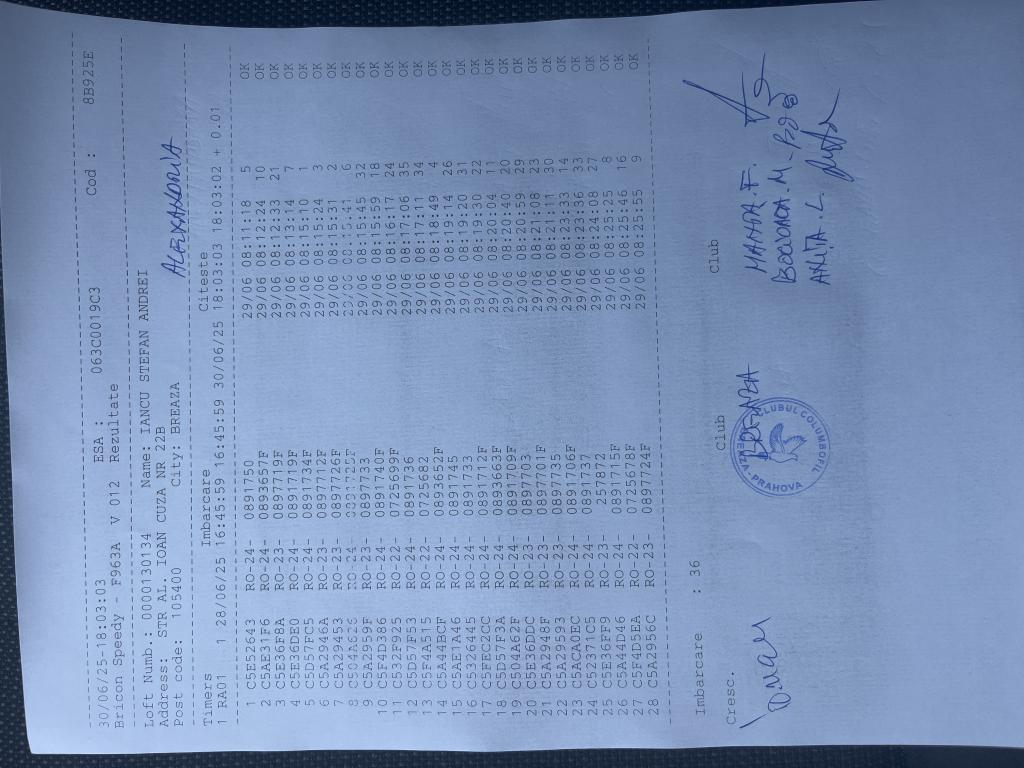 30/06/25-18:03:03 ESA : 063C0019C3 Cod : 8B925E
Bricon Speedy - F963A V 012 Rezultate
Loft Numb.: 0000130134 Name: IANCU STEFAN ANDREI
Address: STR AL. IOAN CUZA NR 22B
Post code: 105400 City: BREAZA
ALEXANDRIA
Timers Imbarcare Citeste
1 RA01 1 28/06/25 16:45:59 16:45:59 30/06/25 18:03:03 18:03:02 + 0.01
1 C5E52643 RO-24- 0891750 29/06 08:11:18 5 OK
2 C5AE31F6 RO-24- 0893657F 29/06 08:12:24 10 OK
3 C5E36F8A RO-23- 0897719F 29/06 08:12:33 21 OK
4 C5E36DE0 RO-24- 0891719F 29/06 08:13:14 7 OK
5 C5D57FC5 RO-24- 0891734F 29/06 08:15:10 1 OK
6 C5A2946A RO-23- 0897712F 29/06 08:15:24 3 OK
7 C5A29453 RO-23- 0897726F 29/06 08:15:31 2 OK
8 RO-24 6 OK
9 C5A2959F RO-23- 0897734 29/06 08:15:45 32 OK
10 C5F4D386 RO-24- 0891740F 29/06 08:15:59 18 OK
11 C532F925 RO-22- 0725699F 29/06 08:16:17 24 OK
12 C5D57E53 RO-24- 0891736 29/06 08:17:06 35 OK
13 C5F4A515 RO-22- 0725682 29/06 08:17:11 34 OK
14 C5A44BCF RO-24- 0893652F 29/06 08:18:49 4 OK
15 C5AE1A46 RO-24- 0891745 29/06 08:19:14 26 OK
16 C5326445 RO-24- 0891733 29/06 08:19:20 31 OK
17 C5FEC2CC RO-24- 0891712F 29/06 08:19:30 22 OK
18 C5D57F3A RO-24- 0893663F 29/06 08:20:04 11 OK
19 C504A62F RO-24- 0891709F 29/06 08:20:40 20 OK
20 C5E36DDC RO-23- 0897703 29/06 08:20:59 29 OK
21 C5A2948F RO-23- 0897701F 29/06 08:21:08 23 OK
22 C5A29593 RO-23- 0897735 29/06 08:21:11 30 OK
23 C5ACA0EC RO-24- 0891706F 29/06 08:23:33 14 OK
24 C52371C5 RO-24- 0891737 29/06 08:23:36 33 OK
25 C5E36FF9 RO-23- 257872 29/06 08:24:08 27 OK
26 C5A44D46 RO-24- 0891715F 29/06 08:25:25 8 OK
27 C5F4D5EA RO-22- 0725678F 29/06 08:25:46 16 OK
28 C5A2956C RO-23- 0897724F 29/06 08:25:55 9 OK
Imbarcare : 36
Cresc. Club Club
BREAZA
MANDA.F.
ANUTA.L.
CLUBUL COLUMBOFIL BREAZA - PRAHOVA